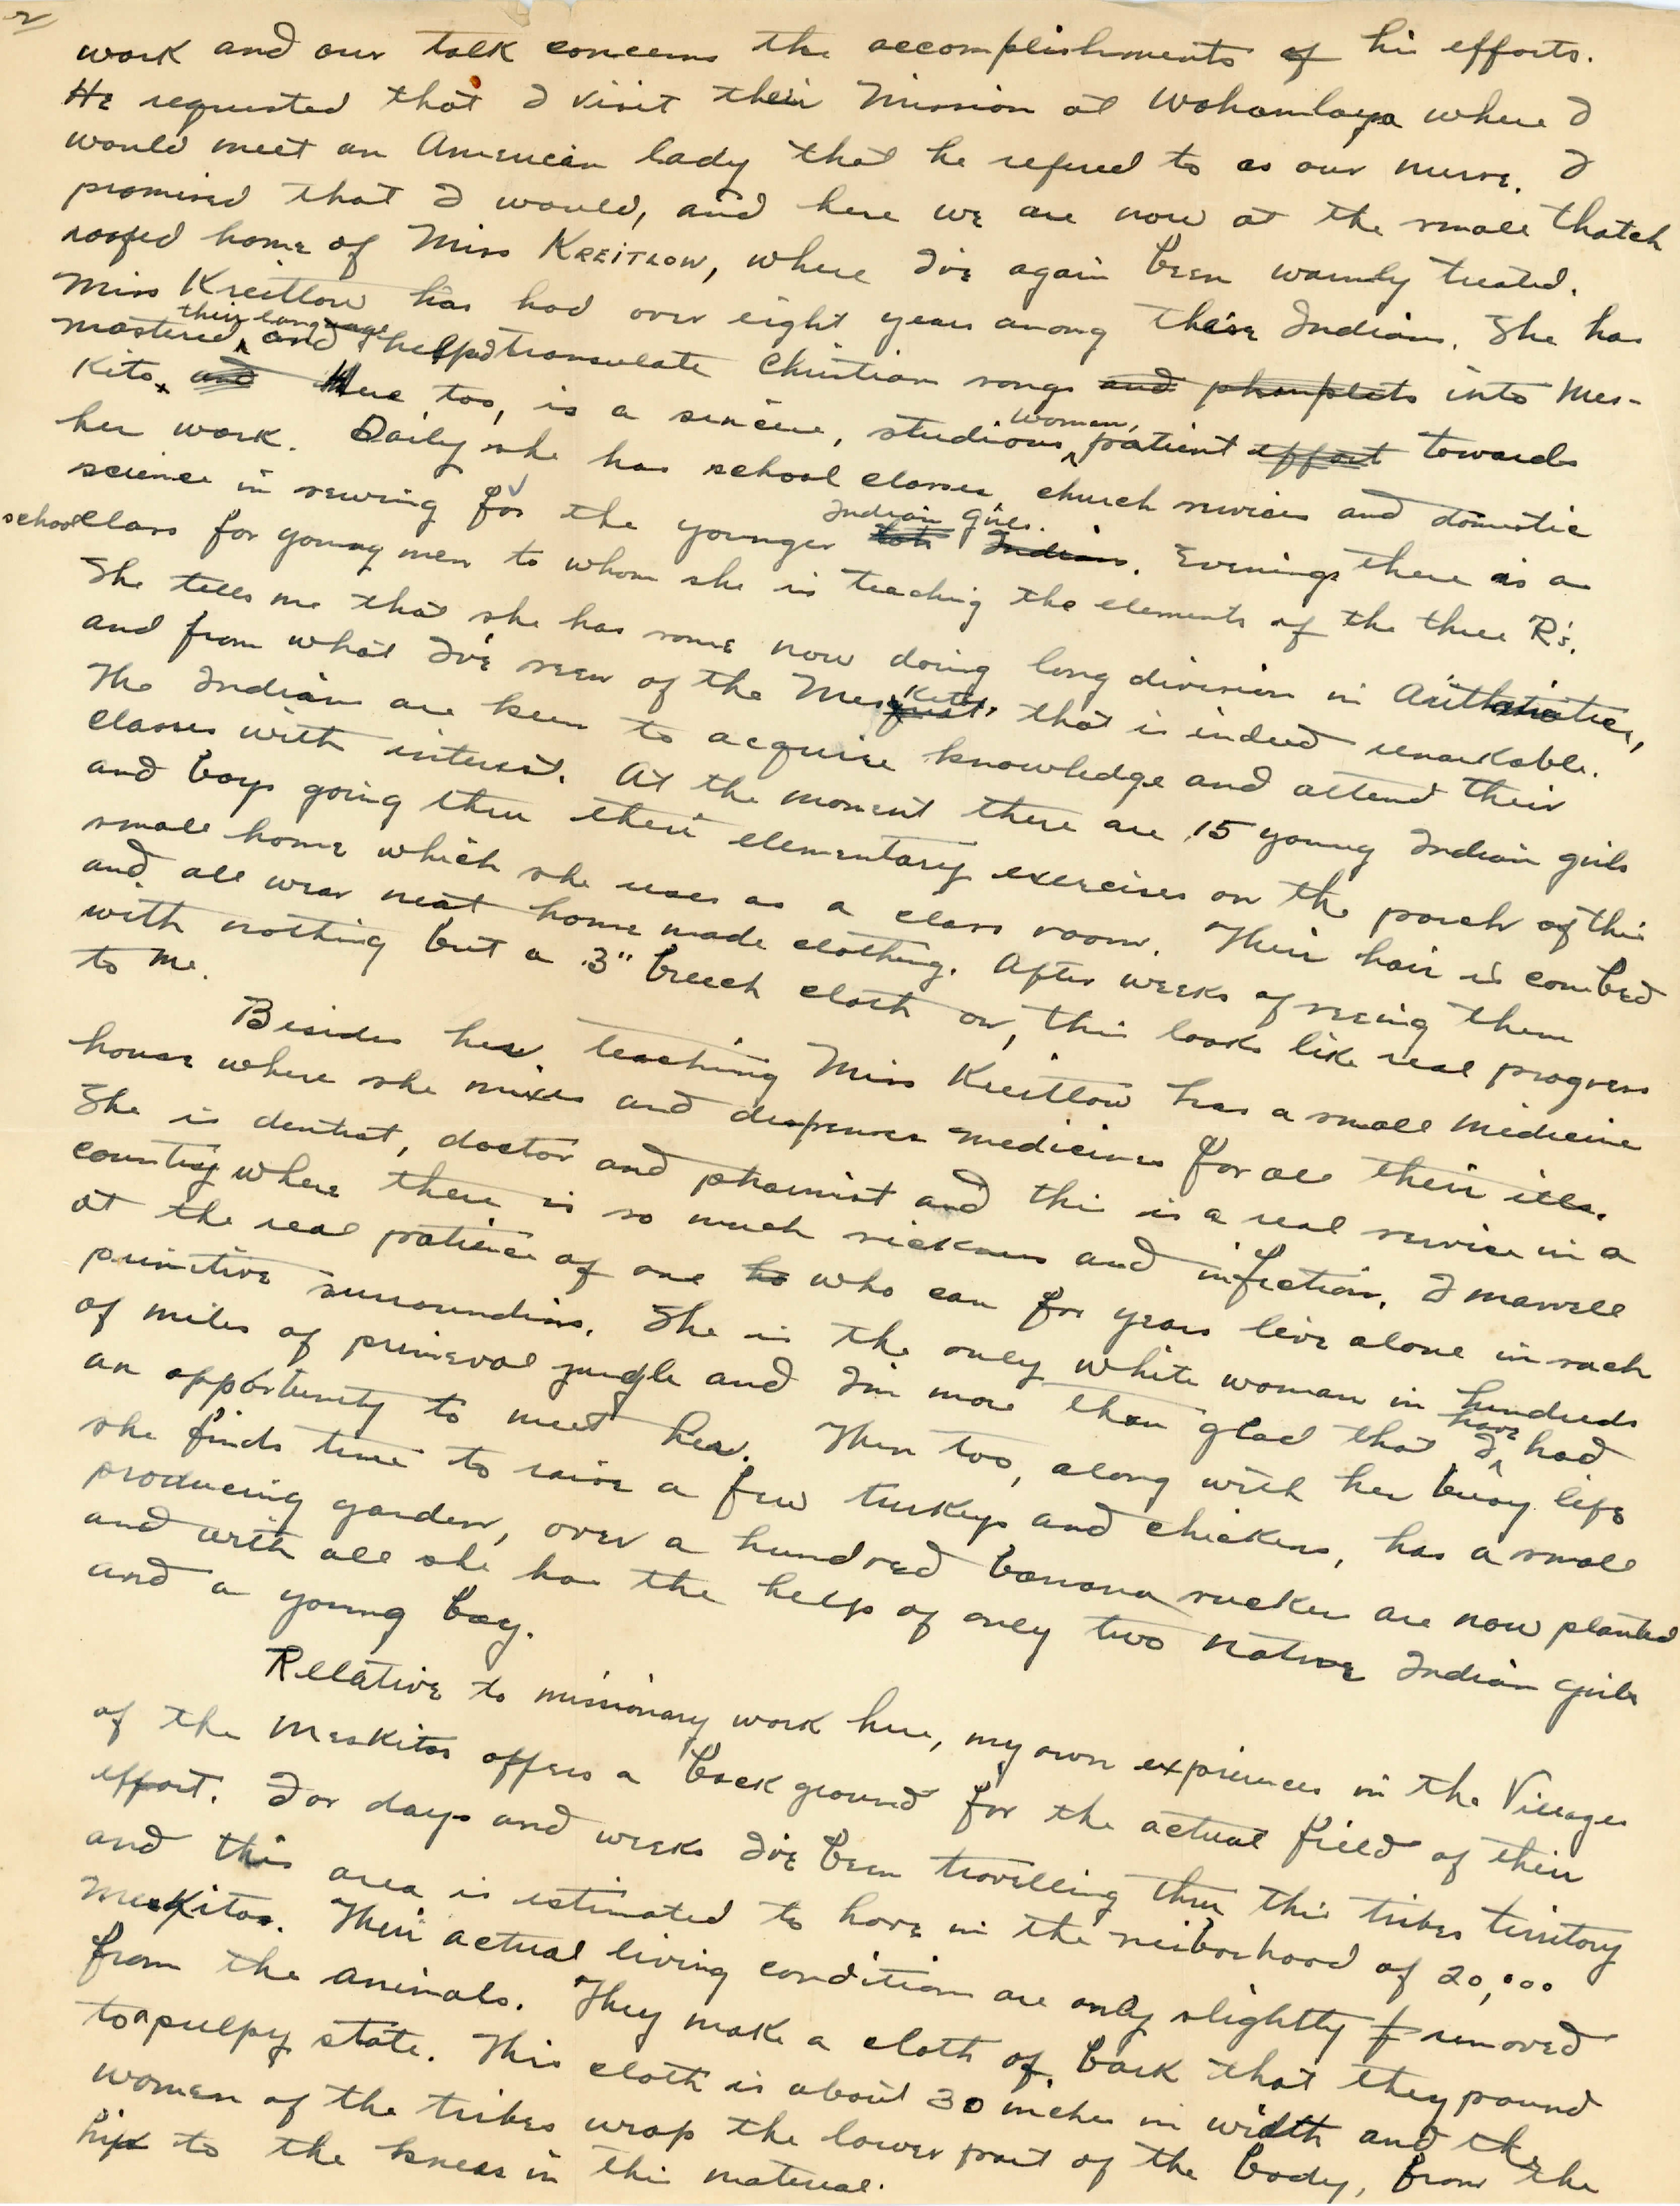 2
work and our talk concerns the accomplishments of his efforts.
He requested that I visit their Mission at Wohamlaya where I
would meet an American lady that he refered to as our nurse. I
promised that I would, and here we are now at the small thatch
roofed home of Miss KREITLOW, where I've again been warmly treated.
Miss Kreitlow has had over eight years among these Indians. She has
mastered their language and helped transulate Christian songs and phamplets into Mes-
Kito. and Here too, is a sincere, studious woman, patient effort towards
her work. Daily she has school classes, church services and domestic
science in sewing for the younger tots Indians. Indian girls. Evenings there is a
school class for young men to whom she is teaching the elements of the three R's.
She tells me that she has some now doing long division in Arithmatic,
and from what I've seen of the MesKito's that is indeed remarkable.
The Indians are keen to acquire knowledge and attend their
classes with interest. At the moment there are 15 young Indian girls
and boys going thru their elementary exercises on the porch of this
small home which she uses as a class room. Their hair is combed
and all wear neat home made clothing. After weeks of seeing them
with nothing but a 3" breech cloth on, this looks like real progress
to me.
Besides her teaching Miss Kreitlow has a small medicine
house where she mixes and despenses medicines for all their ills.
She is dentist, doctor and phamist and this is a real service in a
country where there is so much sickness and infection. I marvell
at the real patience of one ho who can for years live alone in such
primitive surroundins. She is the only white woman in hundreds
of miles of primeval jungle and I'm more than glad that I have had
an opportunity to meet her. Then too, along with her busy life
she finds time to raise a few turkeys and chickens, has a small
producing garden, over a hundred banana suckers are now planted
and with all she has the help of only two native Indian girls
and a young boy.
Relative to missionary work here, my own expriences in the Villages
of the MesKitos offers a back ground for the actual field of their
effort. For days and weeks I've been travelling thru this tribes territory
and this area is estimated to have in the neiborhood of 20,000
MesKitos. Their actual living condition are only slightly f removed
from the animals. They make a cloth of bark that they pound
to a pulpy state. This cloth is about 30 inches in width and the
women of the tribes wrap the lower part of the body, from the
hips to the knees in this material.